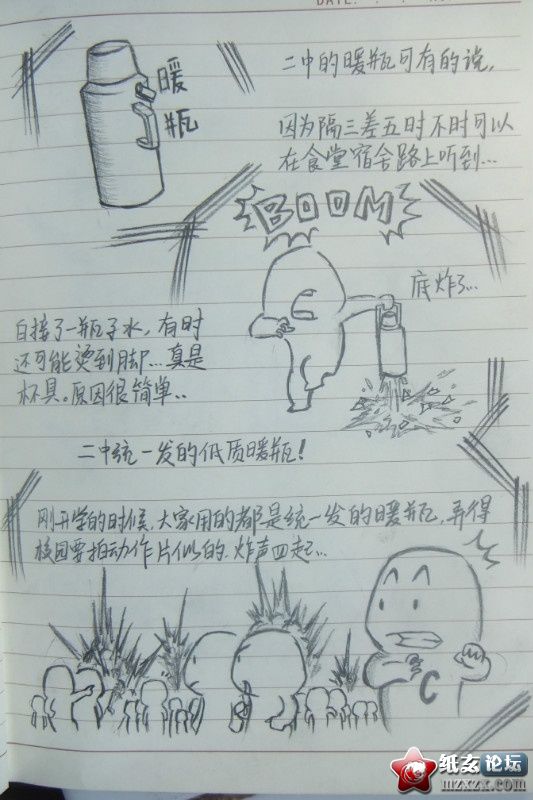 DATE:
暖
瓶
二中的暖瓶可有的说,
因为隔三差五时不时可以
在食堂宿舍路上听到...
BOOM
底炸了...
白接了一瓶子水,有时
还可能烫到脚...真是
杯具。原因很简单..
二中统一发的低质暖瓶!
刚开学的时候,大家用的都是统一发的暖瓶,弄得
校园要拍动作片似的.炸声四起...
C
C
纸女论坛
mzxzx.com